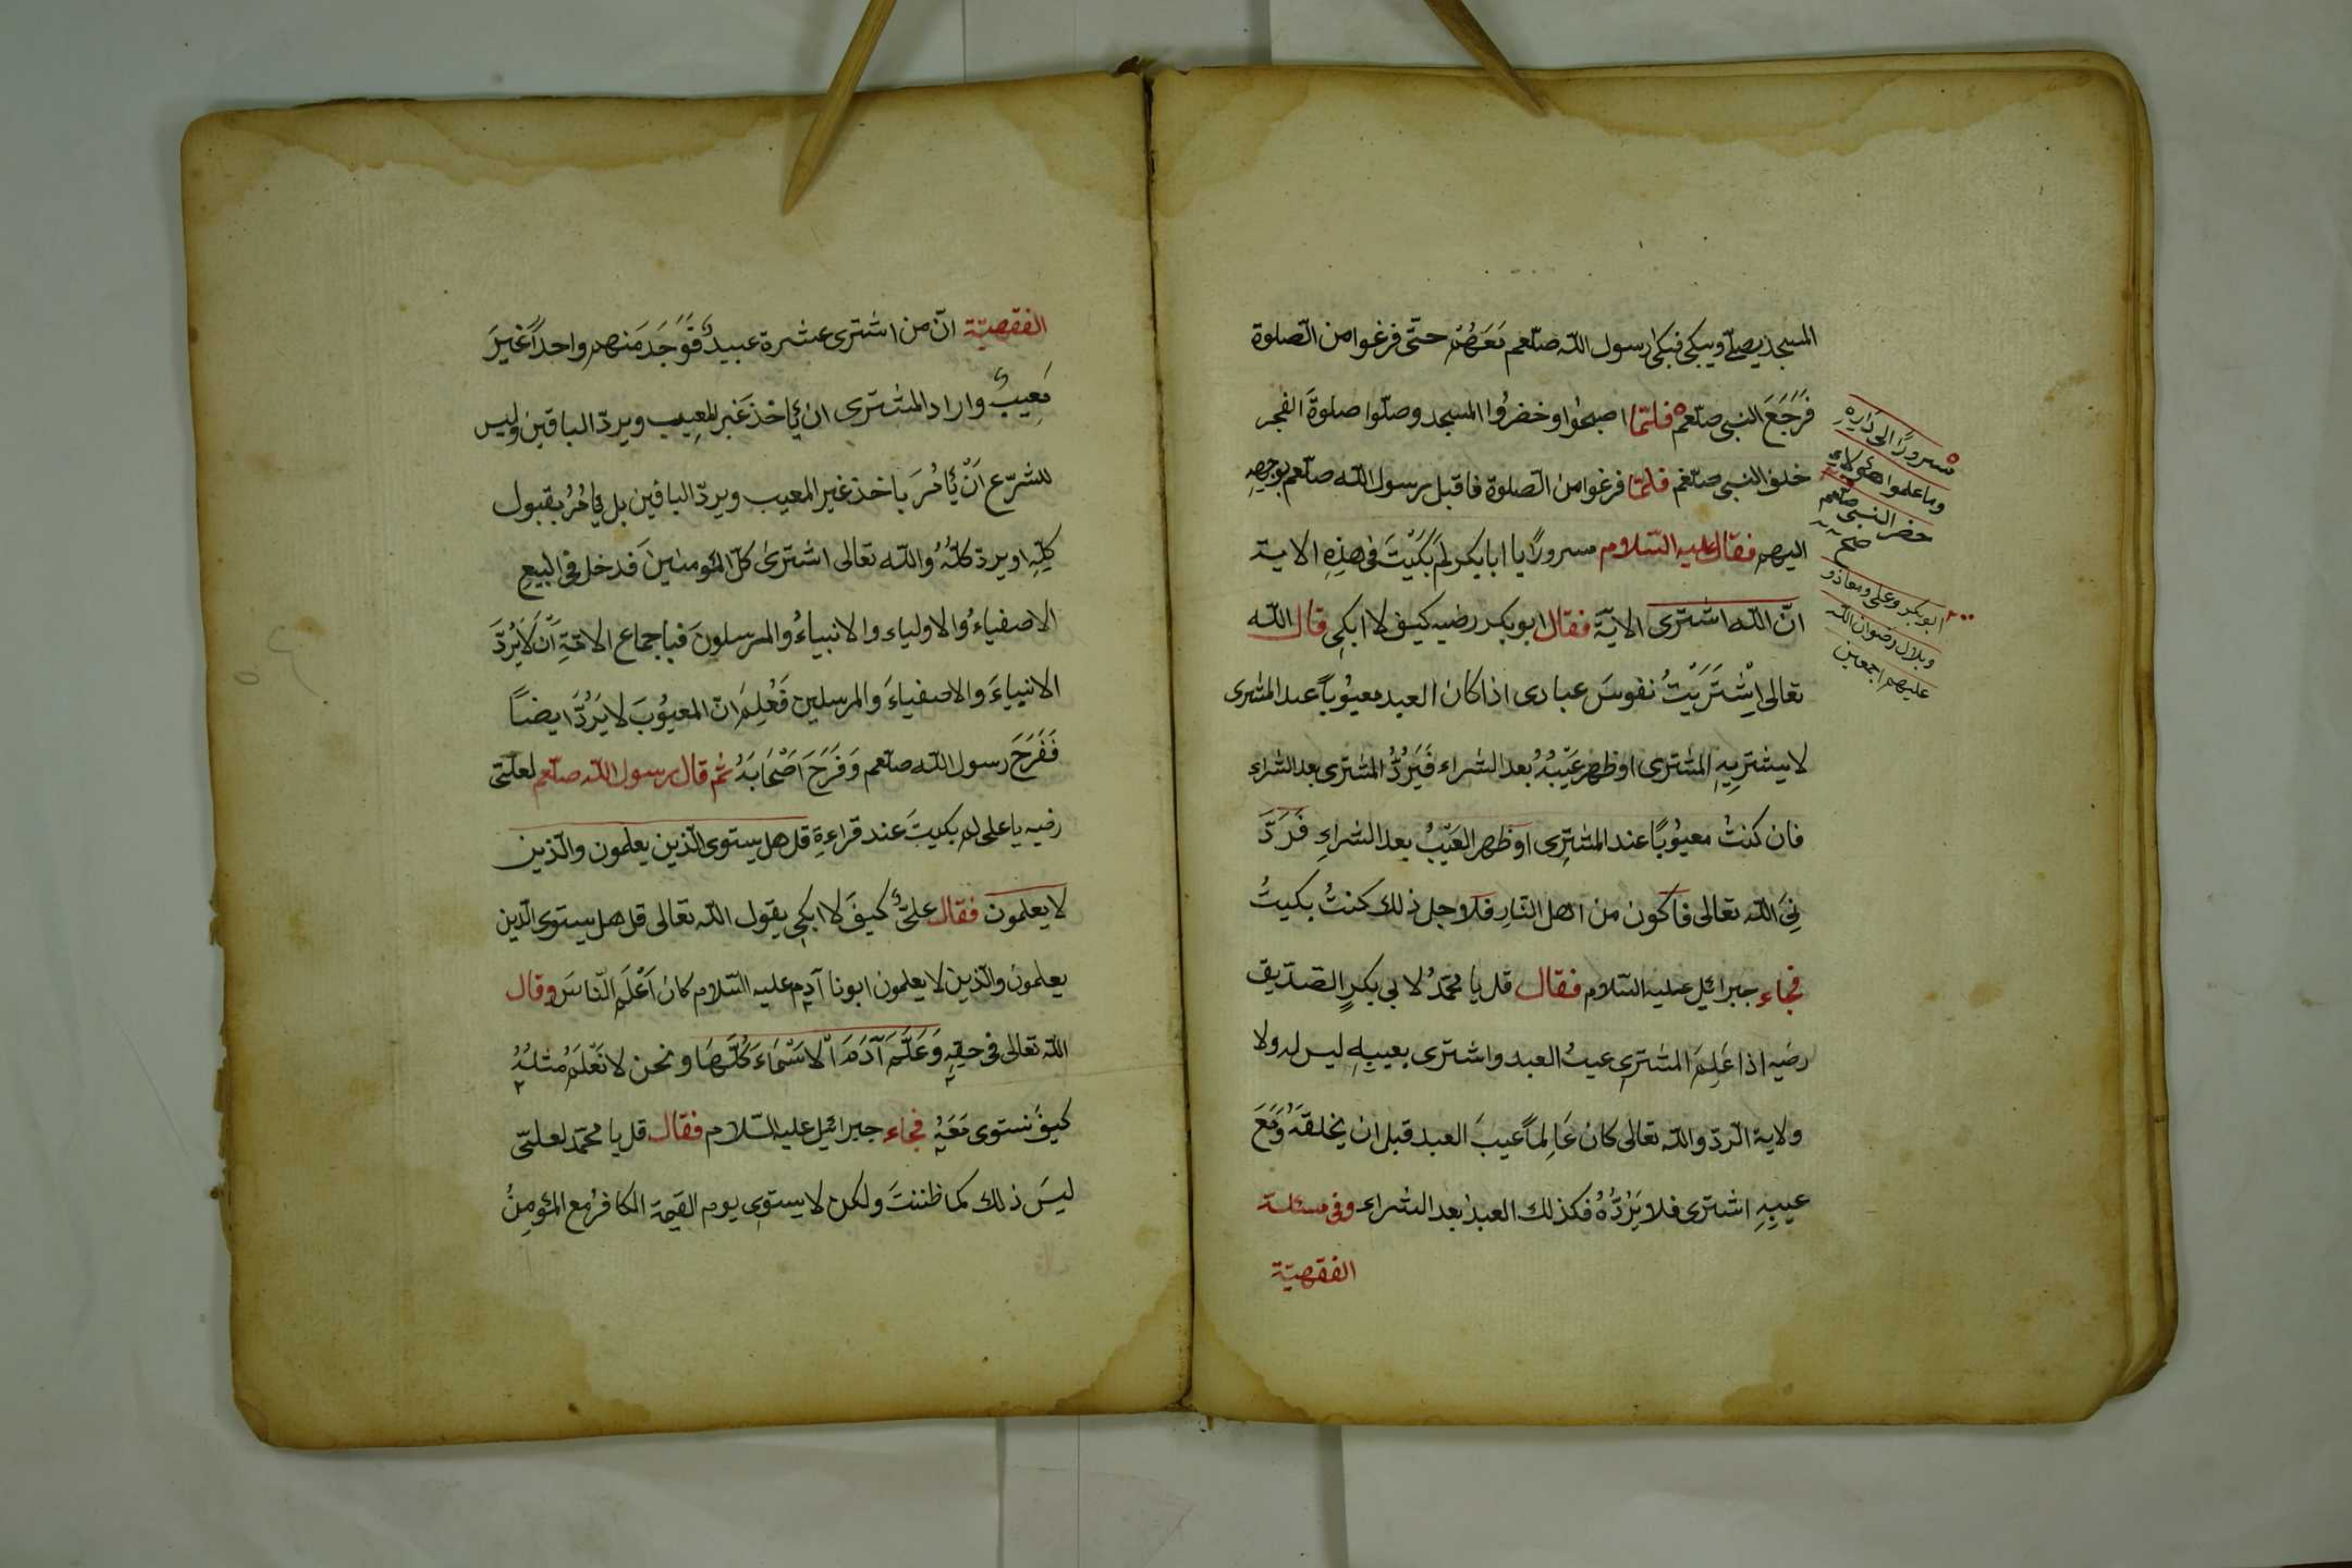 المسجد يصلّے ويبكى فبكى رسول اللّه صلّعم مَعَهُمْ حتّى فرغوا من الصّلوة
فَرَجَعَ النبى صلّعم فلمّا اصبحُوا وخضرُوا المسجد وصلّوا صلوةَ الفجر
خلف النبى صلّعم فلمّا فرغوا من الصّلوة فاقبل رسول اللّه صلّعم بوجهِهِ
اليهم فقال عليه السّلاوم مسرورًا يا ابا بكر لَمْ بَكَيْتَ فى هذِهِ الاية
انّ اللّه اشترى الايَةَ فقال ابو بكر رضيه كيف لا ابكِى قال اللّه
تعالى اِشْتَرَيْتُ نفوسَ عبادى اذا كان العبد معيوُباً عند المشترى
لا يشترِيهِ المشترى اوظهر عَيْبُهُ بعد الشراء فَيَرُدُّ المشترى بعد الشراء
فان كنتُ معيوُبًا عند المشترِى اوظهر العَيْبُ بعد الشراءِ فَرَدَّ
نِىَ اللّه تعالى فاكون من اهل النّارِ فلاوجل ذلك كنتُ بكيتُ
فجاء جبرائيل عليه السّلام فقال قل يا محمّدُ لابى بكرٍ الصّدّيق
رضيه اذا عَلِمَ المشترِى عيبُ العبد واشترى بعيبِهِ ليس له ولا
ولاية الّردّ واللّه تعالى كان عَالِماً عيبَ العبد قبل ان يخلقَهُ وَمَعَ
عيبِهِ اشترى فلا يَرُدُّهُ فكذلك العبدُ بعد الشراء وفى مسئلة
الفقهيّة
سرورًا الى دَارِهِ
وما علموا هئولاءِ
حضر النبى صلّعم
صح
ابو بكر وعلى ومعاذ و
وبلال رضوان اللّه
عليهم اجمعين
الفقهيّة انّ من اشترى عشرة عبيدٍ فَوَجَدَ منهم واحداً غيرَ
مَعِيبٍ واراد المشترى ان ئاخذ غير المعِيب ويردّ الباقين وليس
للشرّع اَنْ ئامُرَ باخذ غير المعيب ويردّ الباقين بل ئامُرُ بقبول
كلِّهِ او يردّ كلَّهُ واللّه تعالى اشترىٰ كلّ المؤمنين فدخل فى البيعِ
الاصفياءُ والاولياء والانبياءُ والمرسلونَ فباجماع الامّةِ اَنْ لَا يُرَدَّ
الانبياءَ والاصفياءَ والمرسلين فَعُلِمَ انّ المعيُوبَ لا يَرُدُّ ايضاً
فَفَرَحَ رسول اللّه صلّعم وَفَرَحَ اَصْحَابَهُ ثم قال رسول اللّه صلّعم لعلّى
رضيه يا على لم بكيتَ عند قراءةِ قل هل يستوى الّذين يعلمون والّذين
لا يعلمون فقال علىّ كيفَ لا ابكِى يقول اللّه تعالى قل هل يستوى الّذين
يعلمون والّذين لا يعلمون ابونا آدم عليه السّلام كان اَعْلَمَ النّاسَ وقال
اللّه تعالى فى حقِهِ وَعَلَّمَ آدَمَ الْاَسْمَاءَ كُلَّهَا ونحن لا نَعْلَمُ مثلَهُ
كيفَ نستوى مَعَهُ فجاء جبرائيل عليه السّلام فقال قل يا محمّد لعلىّ
ليسَ ذلك كما ظننتَ ولكن لا يستوِى يوم القيٰمة الكافرُ مع المؤمِنُ